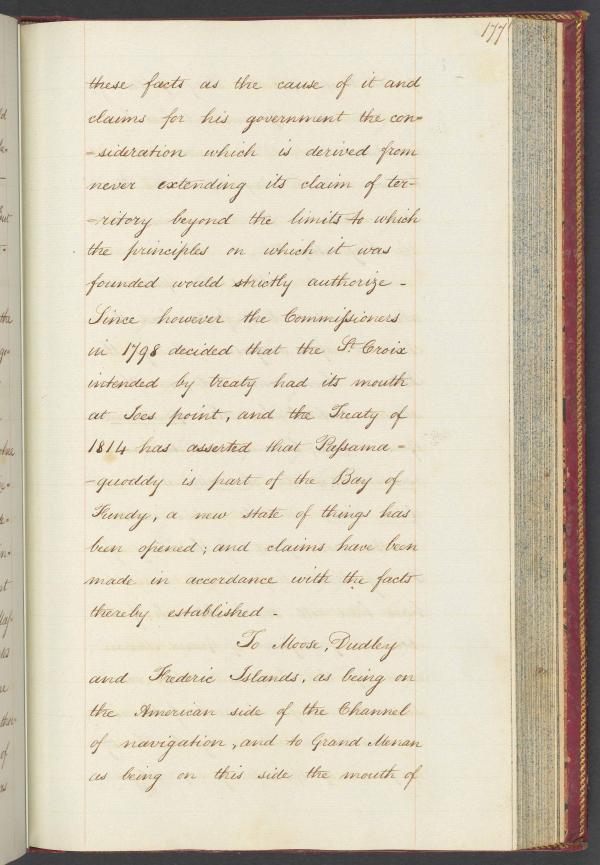 177
these facts as the cause of it and
claims for his government the con=
=sideration which is derived from
never extending its claim of ter=
=ritory beyond the limits to which
the principles on which it was
founded would strictly authorize -
Since however the Commissioners
in 1798 decided that the St Croix
intended by treaty had its mouth
at Joes point, and the Treaty of
1814 has asserted that Passama=
=quoddy is part of the Bay of
Fundy, a new state of things has
been opened; and claims have been
made in accordance with the facts
thereby established -
To Moose, Dudley
and Frederic Islands, as being on
the American side of the Channel
of navigation, and to Grand Menan
as being on this side the mouth of